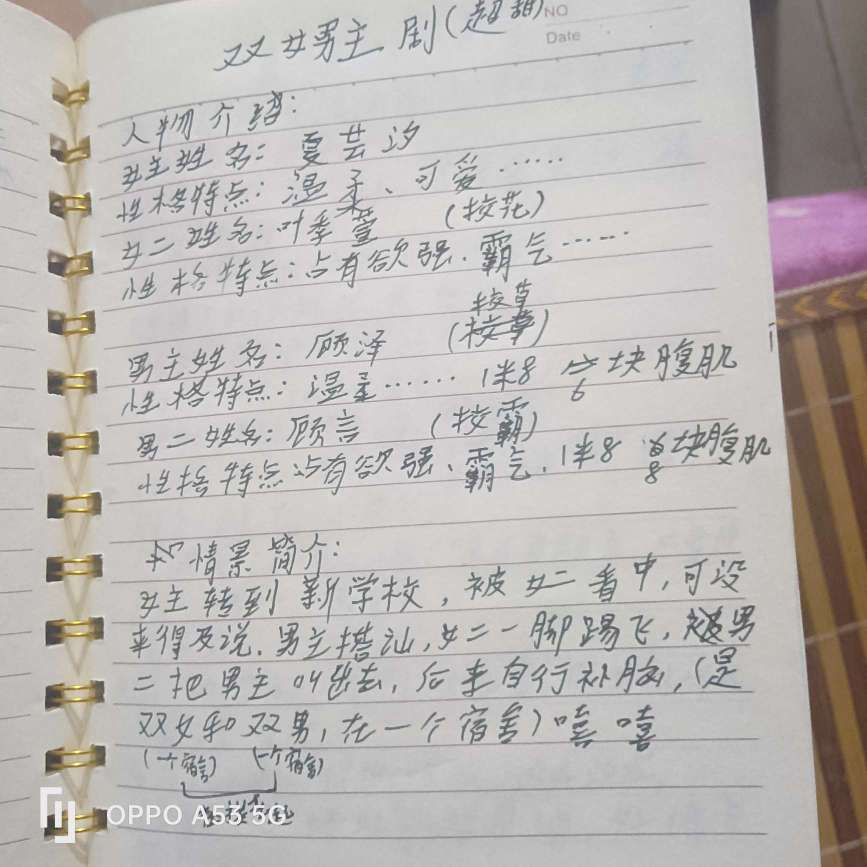 双女男主剧(超甜)
NO
Date
人物介绍:
女主姓名: 夏芸汐
性格特点: 温柔、可爱……
女二姓名: 叶季萱 (校花)
性格特点: 占有欲强、霸气……
校草
男主姓名: 顾泽 (校草)
性格特点: 温柔…… 1米8 块腹肌
6
男二姓名: 顾言 (校霸)
性格特点占有欲强、霸气、1米8 块腹肌
8
情景简介:
女主转到新学校,被女二看中,可没
来得及说,男主搭讪,女二一脚踢飞,被男
二把男主叫出去,后来自行补脑,(是
双女和双男,在一个宿舍)嘻嘻
(一个宿舍) (一个宿舍)
OPPO A53 5G